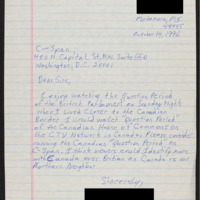 Petersburg, MI
49xxx
October 14, 1996
C-Span
400 N. Capital St. NW. Suite 650
Washington, D.C. 20001
Dear Sirs,
I enjoy watching the Question Period
of the British Parliament on Sunday Nights.
When I lived closer to the Canadian
Border, I would watch "Question Period"
of the Canadian House of Commons on
the CTV Network in Canada. Please consider
running the Canadian "Question Period" on
C-Span. I think viewers would identify more
with Canada over Britain as Canada is our
Northern Neighbor.
Sincerely,